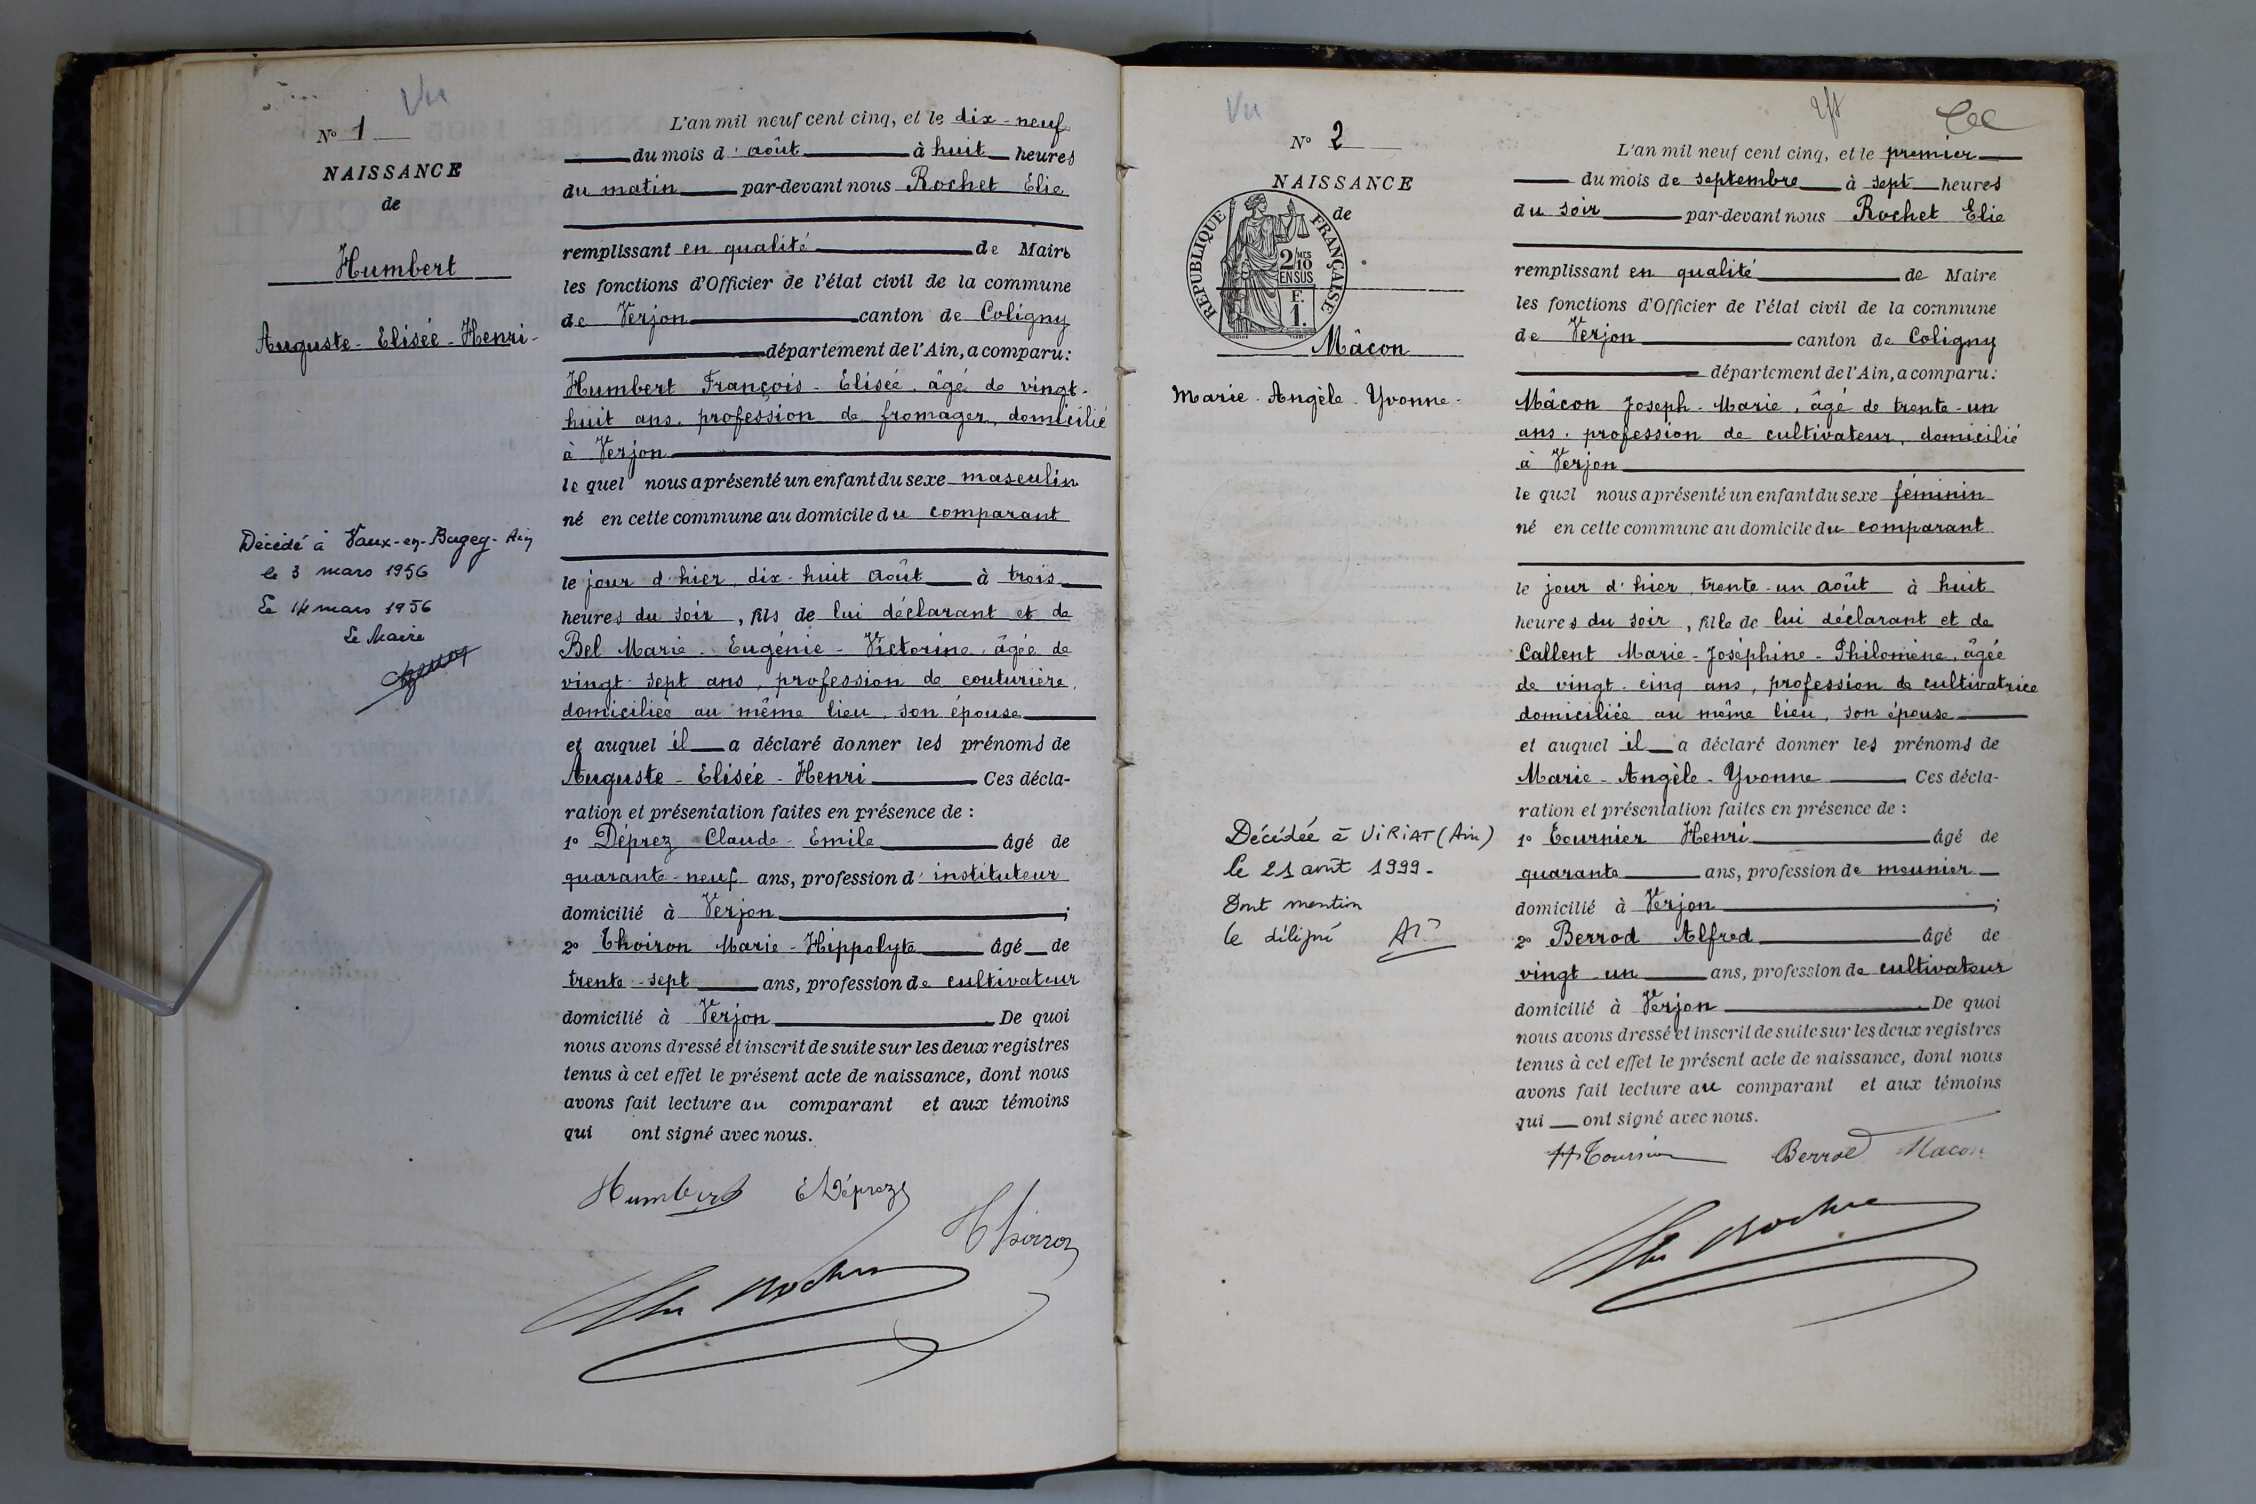 Vu
N° 1
NAISSANCE
de
Humbert
Auguste - Elisée - Henri -
Décédé à Vaux-en-Bugey - Ain
le 3 mars 1956
Le 14 mars 1956
Le Maire
L'an mil neuf cent cinq, et le dix-neuf
du mois d'août à huit heures
du matin par-devant nous Rochet Elie
remplissant en qualité de Maire
les fonctions d'Officier de l'état civil de la commune
de Verjon canton de Coligny
département de l'Ain, a comparu:
Humbert François - Elisée, âgé de vingt-
huit ans, profession de fromager, domicilié
à Verjon
lequel nous a présenté un enfant du sexe masculin
né en cette commune au domicile du comparant
le jour d'hier, dix-huit août à trois
heures du soir, fils de lui déclarant et de
Bel Marie - Eugénie - Victorine, âgée de
vingt-sept ans, profession de couturière,
domiciliée au même lieu, son épouse
et auquel il a déclaré donner les prénoms de
Auguste - Elisée - Henri Ces décla-
ration et présentation faites en présence de :
1° Déprez Claude - Emile âgé de
quarante-neuf ans, profession d'instituteur
domicilié à Verjon ;
2° Thoiron Marie - Hippolyte âgé de
trente-sept ans, profession de cultivateur
domicilié à Verjon De quoi
nous avons dressé et inscrit de suite sur les deux registres
tenus à cet effet le présent acte de naissance, dont nous
avons fait lecture au comparant et aux témoins
qui ont signé avec nous.
Humbert E Déprez
H Thoiron
Elie Rochet
Vu
N° 2
NAISSANCE
de
RÉPUBLIQUE FRANÇAISE
2/10
EN SUS
F.
1.
Mâcon
Marie - Angèle - Yvonne -
Décédée à VIRIAT (Ain)
le 21 août 1999 -
Dont mention
le délégué
L'an mil neuf cent cinq, et le premier
du mois de septembre à sept heures
du soir par-devant nous Rochet Elie
remplissant en qualité de Maire
les fonctions d'Officier de l'état civil de la commune
de Verjon canton de Coligny
département de l'Ain, a comparu:
Mâcon Joseph - Marie, âgé de trente-un
ans, profession de cultivateur, domicilié
à Verjon
lequel nous a présenté un enfant du sexe féminin
né en cette commune au domicile du comparant
le jour d'hier, trente-un août à huit
heures du soir, fille de lui déclarant et de
Callent Marie - Joséphine - Philomène, âgée
de vingt-cinq ans, profession de cultivatrice
domiciliée au même lieu, son épouse
et auquel il a déclaré donner les prénoms de
Marie - Angèle - Yvonne Ces décla-
ration et présentation faites en présence de :
1° Tournier Henri âgé de
quarante ans, profession de meunier
domicilié à Verjon ;
2° Berrod Alfred âgé de
vingt-un ans, profession de cultivateur
domicilié à Verjon De quoi
nous avons dressé et inscrit de suite sur les deux registres
tenus à cet effet le présent acte de naissance, dont nous
avons fait lecture au comparant et aux témoins
qui ont signé avec nous.
H Tournier Berrod Macon
Elie Rochet